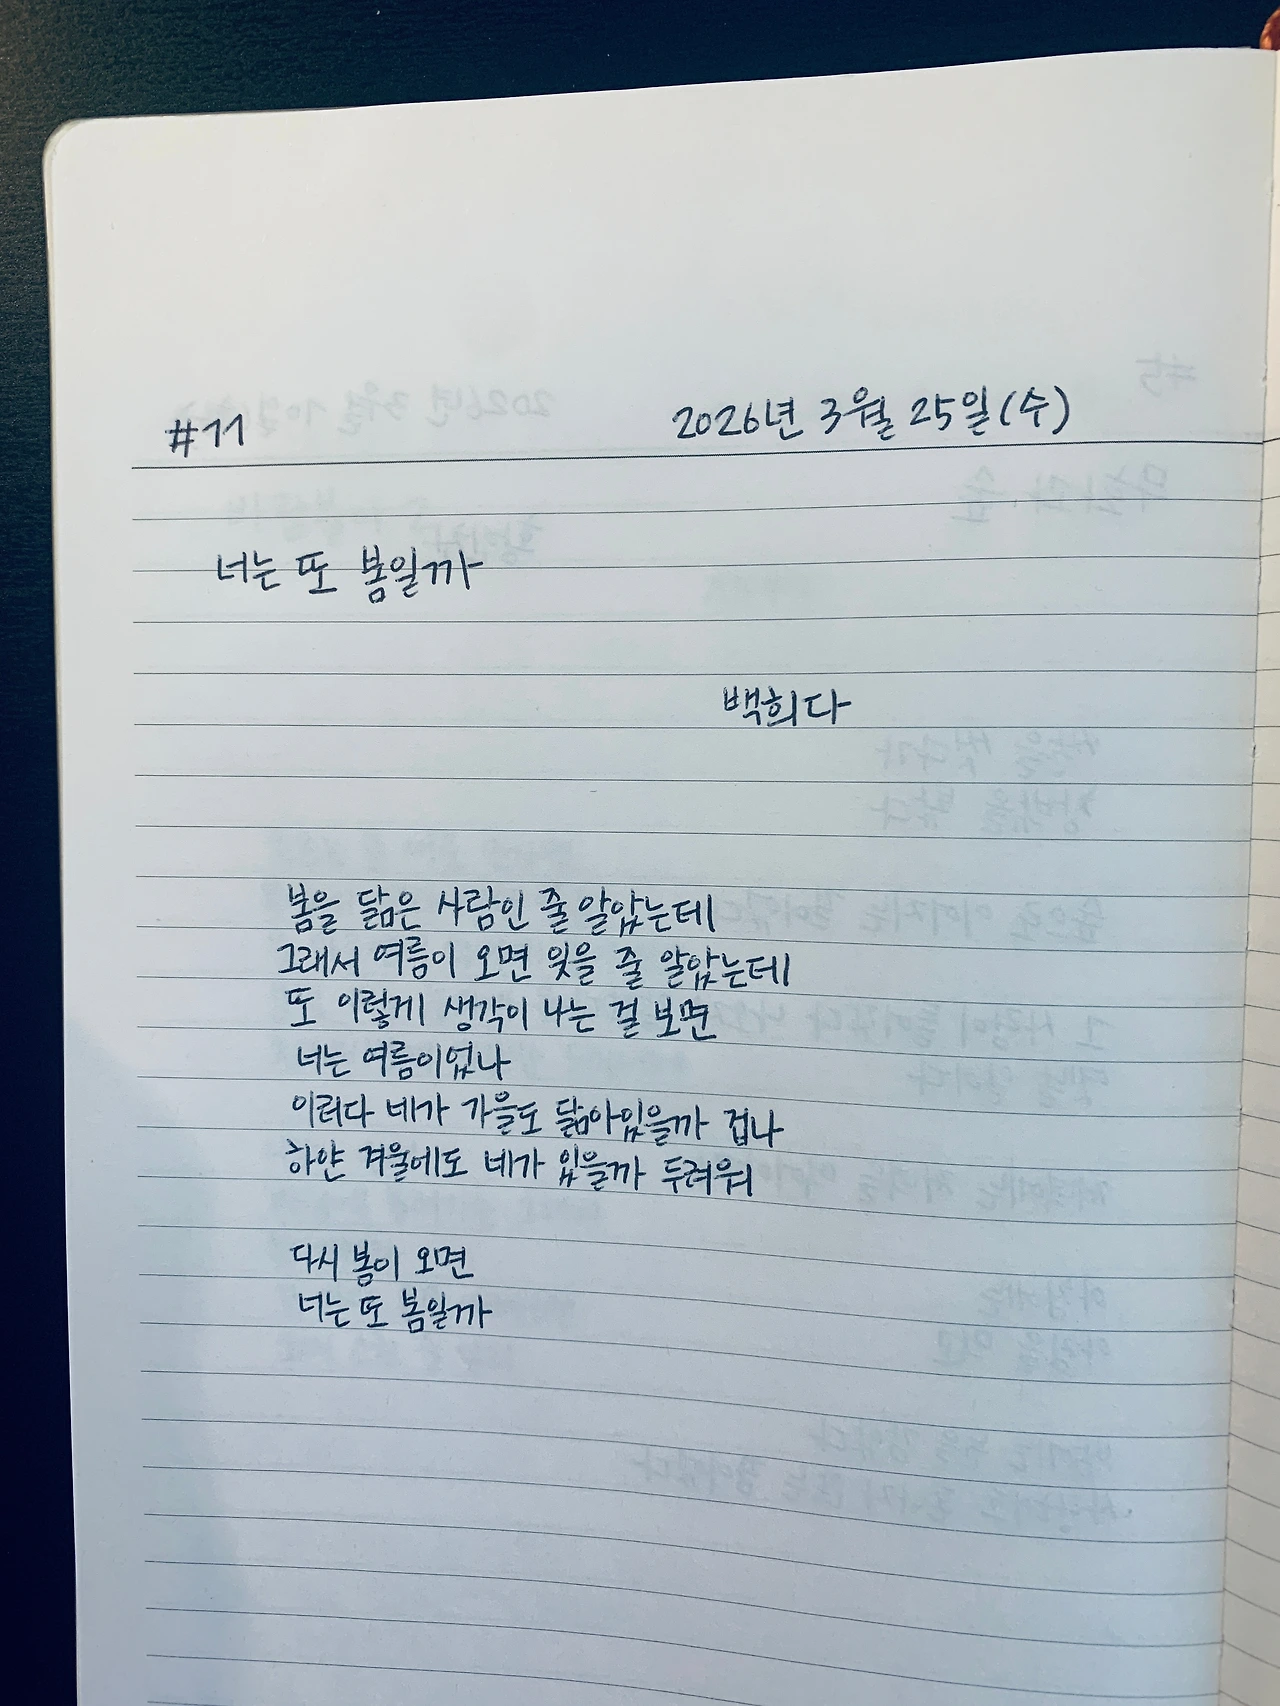 #11 2026년 3월 25일(수)
너는 또 봄일까
백희다
봄을 닮은 사람인 줄 알았는데
그래서 여름이 오면 잊을 줄 알았는데
또 이렇게 생각이 나는 걸 보면
너는 여름이었나
이러다 네가 가을도 닮아있을까 겁나
하얀 겨울에도 네가 있을까 두려워
다시 봄이 오면
너는 또 봄일까